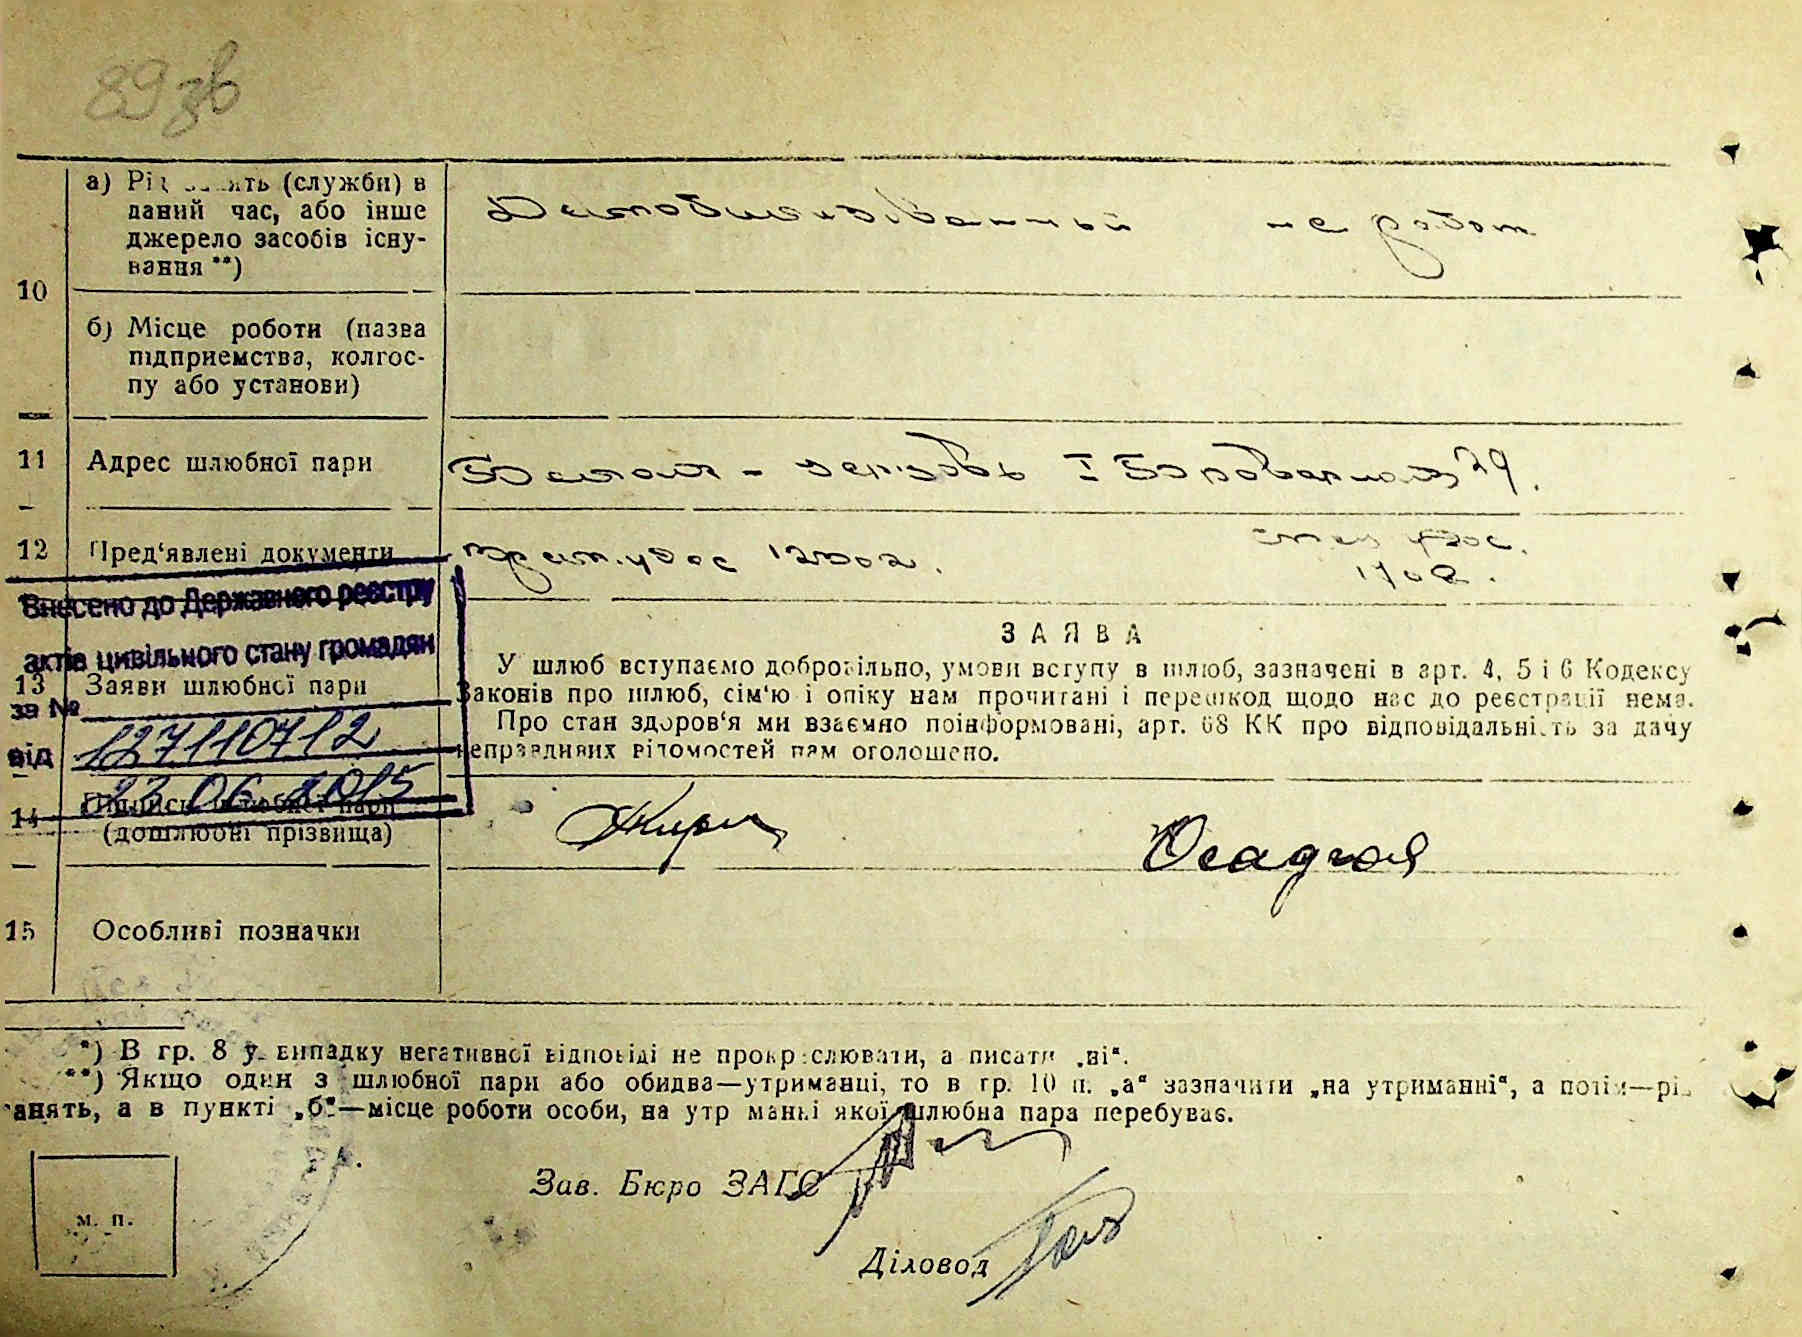 89 зв
а) Рід занять (служби) в
даний час, або інше
джерело засобів існу-
вання **)
Демобилизованный не работ
10
б) Місце роботи (назва
підприємства, колгос-
пу або установи)
11 Адрес шлюбної пари
29.
12 Пред'явлені документи
Внесено до Державного реєстру
актів цивільного стану громадян
13 Заяви шлюбної пари
за № 127110712
від 23 06 2015
ЗАЯВА
У шлюб вступаємо добровільно, умови вступу в шлюб, зазначені в арт. 4, 5 і 6 Кодексу
Законів про шлюб, сім'ю і опіку нам прочитані і перешкод щодо нас до реєстрації нема.
Про стан здоров'я ми взаємно поінформовані, арт. 68 КК про відповідальність за дачу
неправдивих відомостей нам оголошено.
14 Підписи шлюбної пари
(дошлюбні прізвища)
Осадчая
15 Особливі позначки
*) В гр. 8 у випадку негативної відповіді не прокреслювати, а писати „ні“.
**) Якщо один з шлюбної пари або обидва—утриманці, то в гр. 10 п. „а“ зазначити „на утриманні“, а потім—рід
занять, а в пункті „б“—місце роботи особи, на утриманні якої шлюбна пара перебуває.
Зав. Бюро ЗАГС
м. п.
Діловод